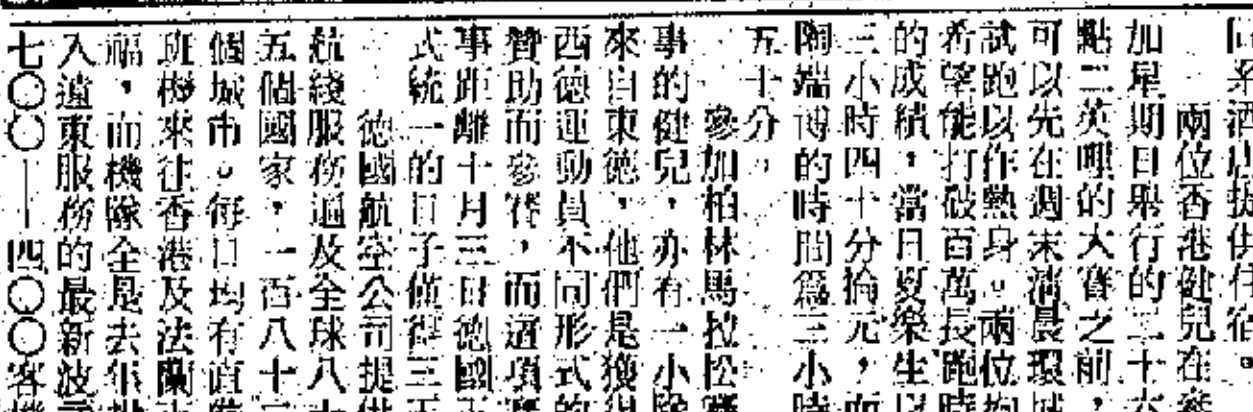 兩位香港健兒在參
加星期日舉行的二十六
點二英哩的大賽之前，
可以先在週末清晨環城
試跑以作熱身。兩位
希望能打破百萬長跑時
的成績，當日夏樂生以
三小時四十分餘元，而
陶端博的時間為三小時
五十分。
參加柏林馬拉松賽
事的健兒，亦有一小隊
來自東德，他們是獲得
西德運動員不同形式的
贊助而參賽，而這項賽
事距離十月三日德國正
式統一的日子僅得三天
德國航空公司提供
航綫服務遍及全球八十
五個國家，一百八十二
個城市。每日均有直
班機來往香港及法蘭
福，而機隊全是去年
入遠東服務的最新波
七〇〇——四〇〇客機